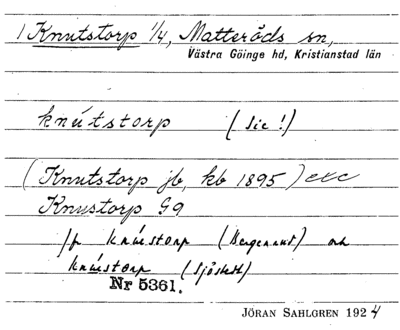 1 Knutstorp 1/4, Matteröds sn,
Västra Göinge hd, Kristianstad län
knútstorp (Sic!)
(Knutstorp jb, kb 1895) etc
Knustorp G9
/fr knústorp (Bergenand) och
knústorp (Sjöstedt)
Nr 5361.
JÖRAN SAHLGREN 1924